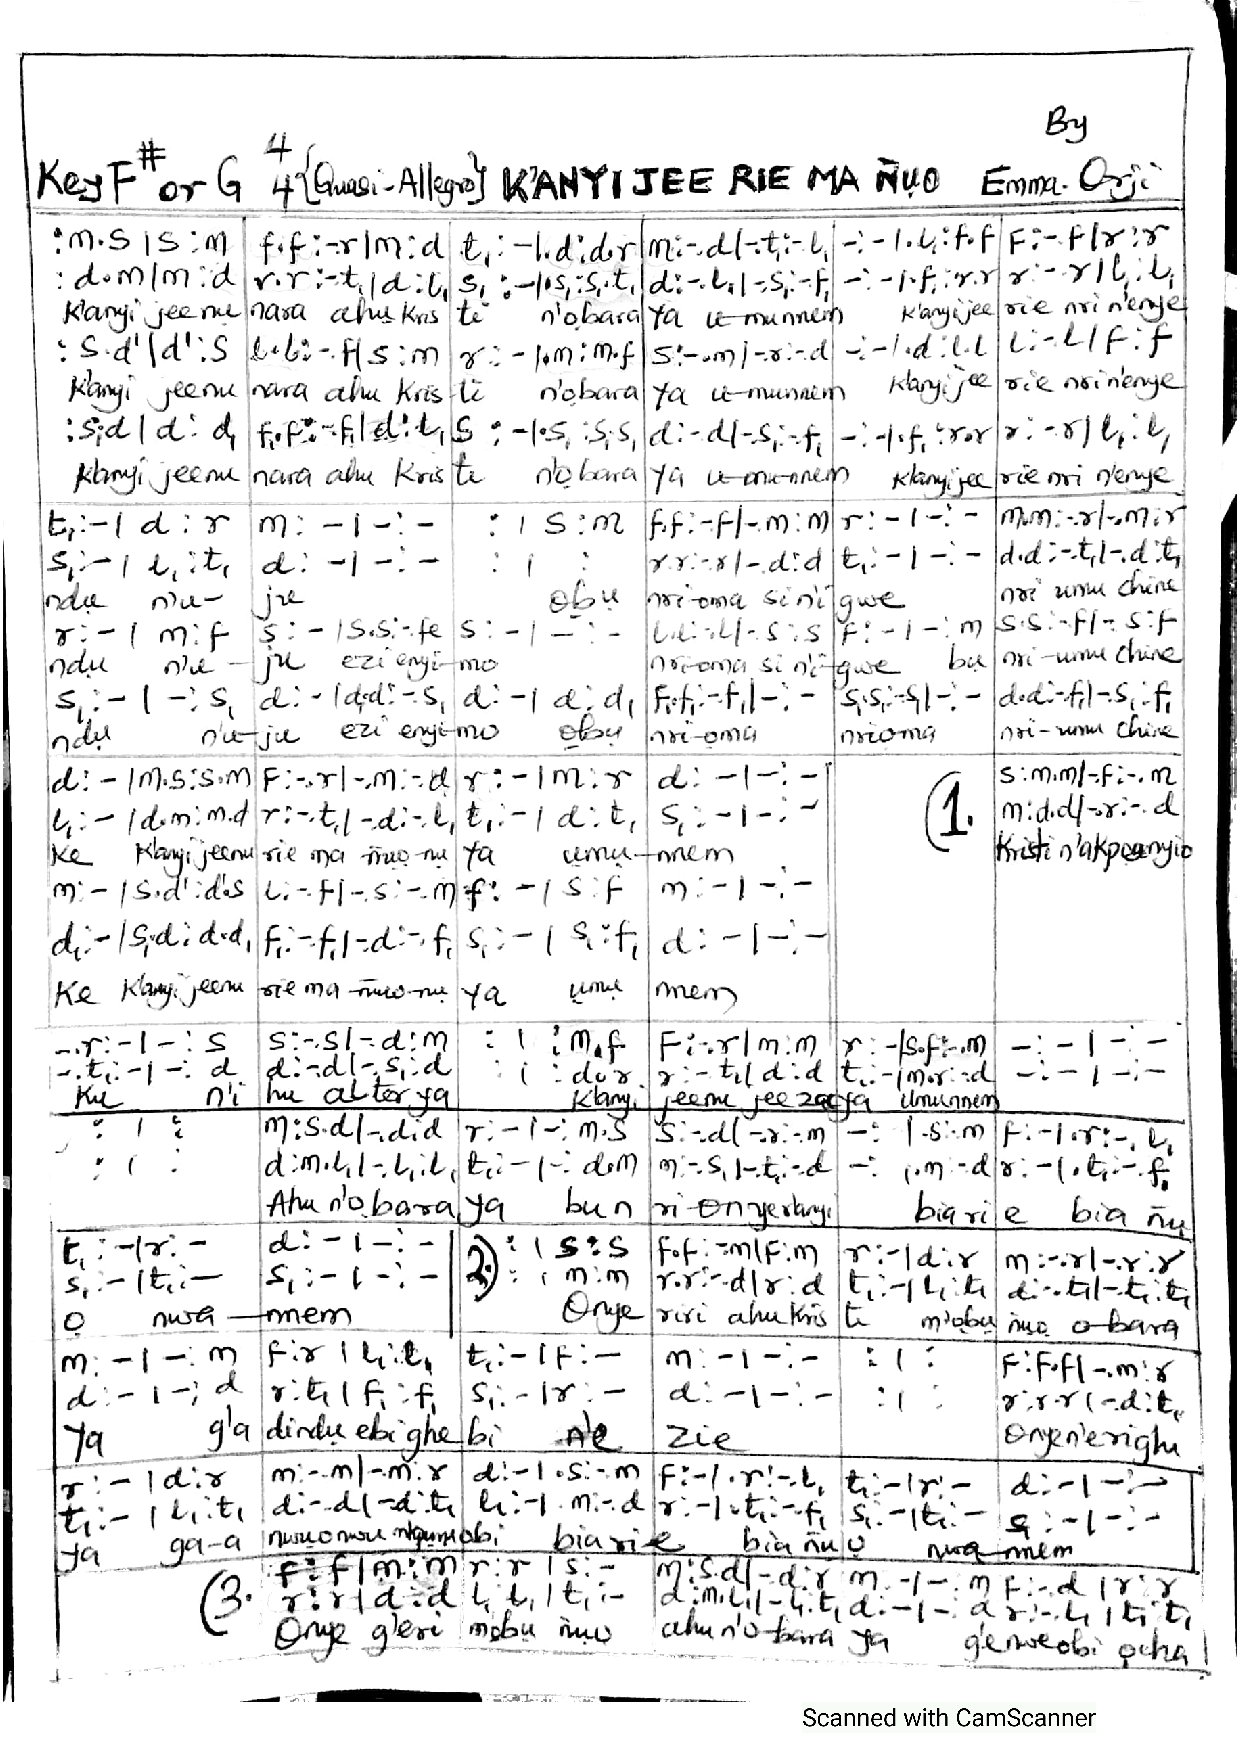 By
Key F# or G 4/4 {Quasi-Allegro} K'ANYI JEE RIE MA ÑỤO Emma. Orji
:m.s|s:m f.f:-.r|m:d t₁:-|.d:d.r m:-.d|-.t₁:-.l₁ -:-|.l₁:f.f f:-.f|r:r
:d.m|m:d r.r:-.t₁|d:l₁ s₁:-|.s₁:s₁.t₁ d:-.l₁|-.s₁:-.f₁ -:-|.f₁:r.r r:-.r|l₁:l₁
K'anyi jeenu nara ahụ Kris ti n'ọbara ya ụ-munnem k'anyi jee rie nri n'enye
:s.d'|d':s l.l:-.f|s:m r:-|.m:m.f s:-.m|-.r:-.d -:-|.d:l.l l:-.l|f:f
K'anyi jeenu nara ahụ Kris ti n'ọbara ya ụ-munnem K'anyi jee rie nri n'enye
:s₁.d|d:d₁ f₁.f₁:-.f₁|d:l₁ s:-|.s₁:s₁.s₁ d:-.d|-.s₁:-.f₁ -:-|.f₁:r.r r:-.r|l₁:l₁
K'anyi jeenu nara ahụ Kris ti n'ọbara ya ụ-munnem K'anyi jee rie nri n'enye
t₁:-|d:r m:-|-:- :|s:m f.f:-.f|-.m:m r:-|-:- m.m:-.r|-.m:r
s₁:-|l₁:t₁ d:-|-:- :|: r.r:-.r|-.d:d t₁:-|-:- d.d:-.t₁|-.d:t₁
ndụ n'u- ju ọbụ nri-ọma si n'i gwe nri ụmụ chine
r:-|m:f s:-|s.s:-.fe s:-|-:- l.l:-.l|-.s:s f:-|-:m s.s:-.f|-.s:f
ndụ n'u- ju ezi enyi-mo nri-ọma si n'i-gwe bụ nri-ụmụ chine
s₁:-|-:s₁ d:-|d.d:-.s₁ d:-|d:d₁ f₁.f₁:-.f₁|-:- s₁.s₁:-.s₁|-:- d.d:-.f₁|-.s₁:f₁
ndụ n'u-ju ezi enyi-mo ọbụ nri-ọma nriọma nri-ụmụ chine
d:-|m.s:s.m f:-.r|-.m:-.d r:-|m:r d:-|-:- (1. s:m.m|-.f:-.m
l₁:-|d.m:m.d r:-.t₁|-.d:-.l₁ t₁:-|d:t₁ s₁:-|-:- m:d.d|-.r:-.d
Ke K'anyi jeenu rie ma ñụọ-nụ ya ụmụ-nnem Kristi n'akpọanyio
m:-|s.d':d'.s l:-.f|-.s:-.m f:-|s:f m:-|-:-
d₁:-|s₁.d:d.d₁ f₁:-.f₁|-.d:-.f₁ s₁:-|s₁:f₁ d:-|-:-
Ke K'anyi jeenu rie ma-ñụọ-nụ ya ụmụ nnem
-.r:-|-:s s:-.s|-.d:m :|:m.f f:-.r|m:m r:-|s.f:-.m -:-|-:-
-.t₁:-|-:d d:-.d|-.s₁:d :|:d.r r:-.t₁|d:d t₁:-|m.r:-.d -:-|-:-
Ku n'i hu altar ya K'anyi jeenu jee ya ụmunnem
:|: m:s.d|-.d:d r:-|-:m.s s:-.d|-.r:-.m -:|-.s:-.m f:-|.r:-.l₁
:|: d:m.l₁|-.l₁:l₁ t₁:-|-:d.m m:-.s₁|-.t₁:-.d -:|.m:-.d r:-|.t₁:-.f₁
Ahụ n'ọbara ya bu n ri-Onye k'anyi bia ri e bia ñụ
t₁:-|r:- d:-|-:- 2.) :|s:s f.f:-.m|f:m r:-|d:r m:-.r|-.r:r
s₁:-|t₁:- s₁:-|-:- :|m:m r.r:-.d|r:d t₁:-|l₁:t₁ d:-.t₁|-.t₁:t₁
ọ nwa-nnem Onye riri ahụ Kris ti m'ọbụ ñụọ ọ-bara
m:-|-:m f:r|l₁:l₁ t₁:-|f:- m:-|-:- :|: f:f.f|-.m:r
d:-|-:d r:t₁|f₁:f₁ s₁:-|r:- d:-|-:- :|: r:r.r|-.d:t₁
ya g'a dindụ ebighe bi n'e zie Onye n'erighi
r:-|d:r m:-.m|-.m:r d:-|.s:-.m f:-|.r:-.l₁ t₁:-|r:- d:-|-:-
t₁:-|l₁:t₁ d:-.d|-.d:t₁ l₁:-|.m:-.d r:-|.t₁:-.f₁ s₁:-|t₁:- s₁:-|-:-
ya ga-a bia rie bia ñụ ọ nwa-nnem
(3. f:f|m:m r:r|s:- m:s.d|-.d:r m:-|-:m f:-.d|r:r
r:r|d:d l₁:l₁|t₁:- d:m.l₁|-.l₁:t₁ d:-|-:d r:-.l₁|t₁:t₁
Onye g'eri mọbụ ñụọ ahụ n'ọ-bara ya g'enweobi ọcha
Scanned with CamScanner